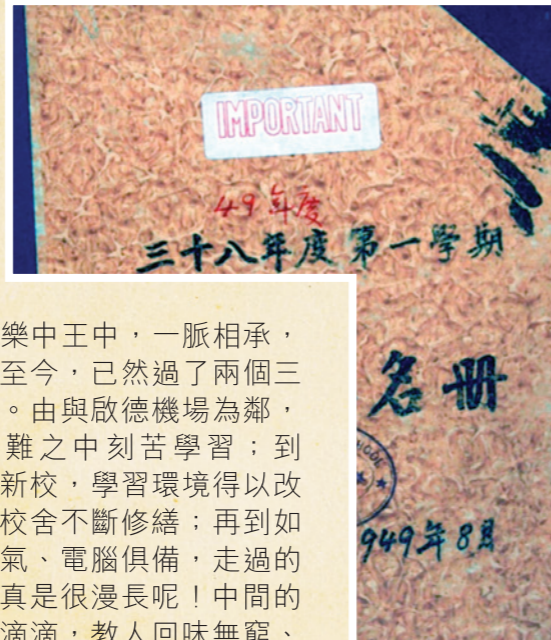 IMPORTANT
49年度
三十八年度第一學期
名冊
1949年8月
樂中王中，一脈相承，
至今，已然過了兩個三
。由與啟德機場為鄰，
難之中刻苦學習；到
新校，學習環境得以改
校舍不斷修繕；再到如
氣、電腦俱備，走過的
真是很漫長呢！中間的
滴滴，教人回味無窮、